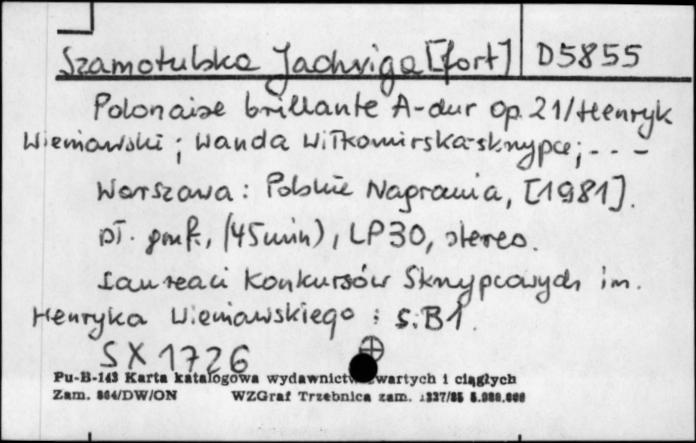 Szamotulska Jadwiga [fort] D5855
Polonaise brillante A-dur op. 21/Henryk
Wieniawski ; Wanda Wiłkomirska-skrzypce; - - -
Warszawa : Polskie Nagrania, [1981].
pł. gmf., (45 min), LP 30, stereo.
Laureaci Konkursów Skrzypcowych im.
Henryka Wieniawskiego : s. B1.
SX 1726
Pu-B-143 Karta katalogowa wydawnictw zwartych i ciągłych
Zam. 864/DW/ON WZGraf Trzebnica zam. 1327/85 5.000.000